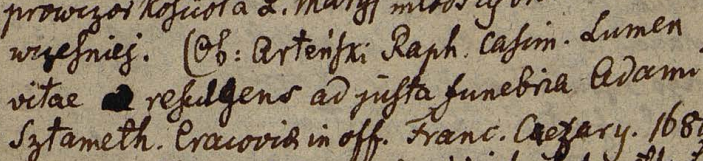 prowizor kościoła S. Maryj
wcześniej. (Ob: Arteński Raph. Casim. Lumen
vitae resulgens ad justa funebria Adami
Sztameth. Cracoviae in off. Franc. Cezary. 168